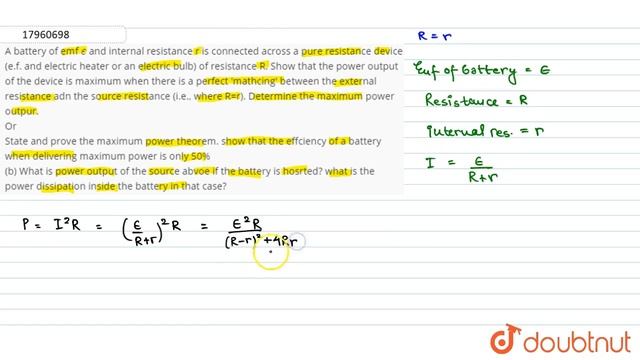 17960698
A battery of emf ε and internal resistance r is connected across a pure resistance device
(e.f. and electric heater or an electric bulb) of resistance R. Show that the power output
of the device is maximum when there is a perfect 'mathcing' between the external
resistance adn the source resistance (i.e., where R=r). Determine the maximum power
outpur.
Or
State and prove the maximum power theorem. show that the effciency of a battery
when delivering maximum power is only 50%
(b) What is power output of the source abvoe if the battery is hosrted? what is the
power dissipation inside the battery in that case?
R = r
Emf of battery = ε
Resistance = R
internal res. = r
I = ε / R+r
P = I²R = (ε / R+r)² R = ε²R / (R-r)² + 4Rr
doubtnut